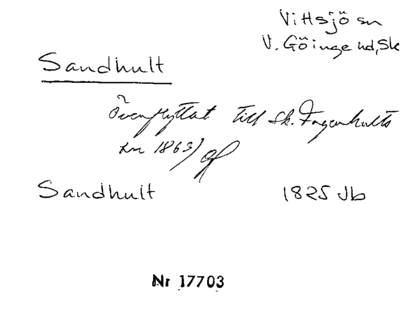 Vittsjö sn
V. Göinge hd, Sk
Sandhult
Överflyttat till Sk. Fagerhults
sn 1863/
Sandhult 1825 Jb
Nr 17703